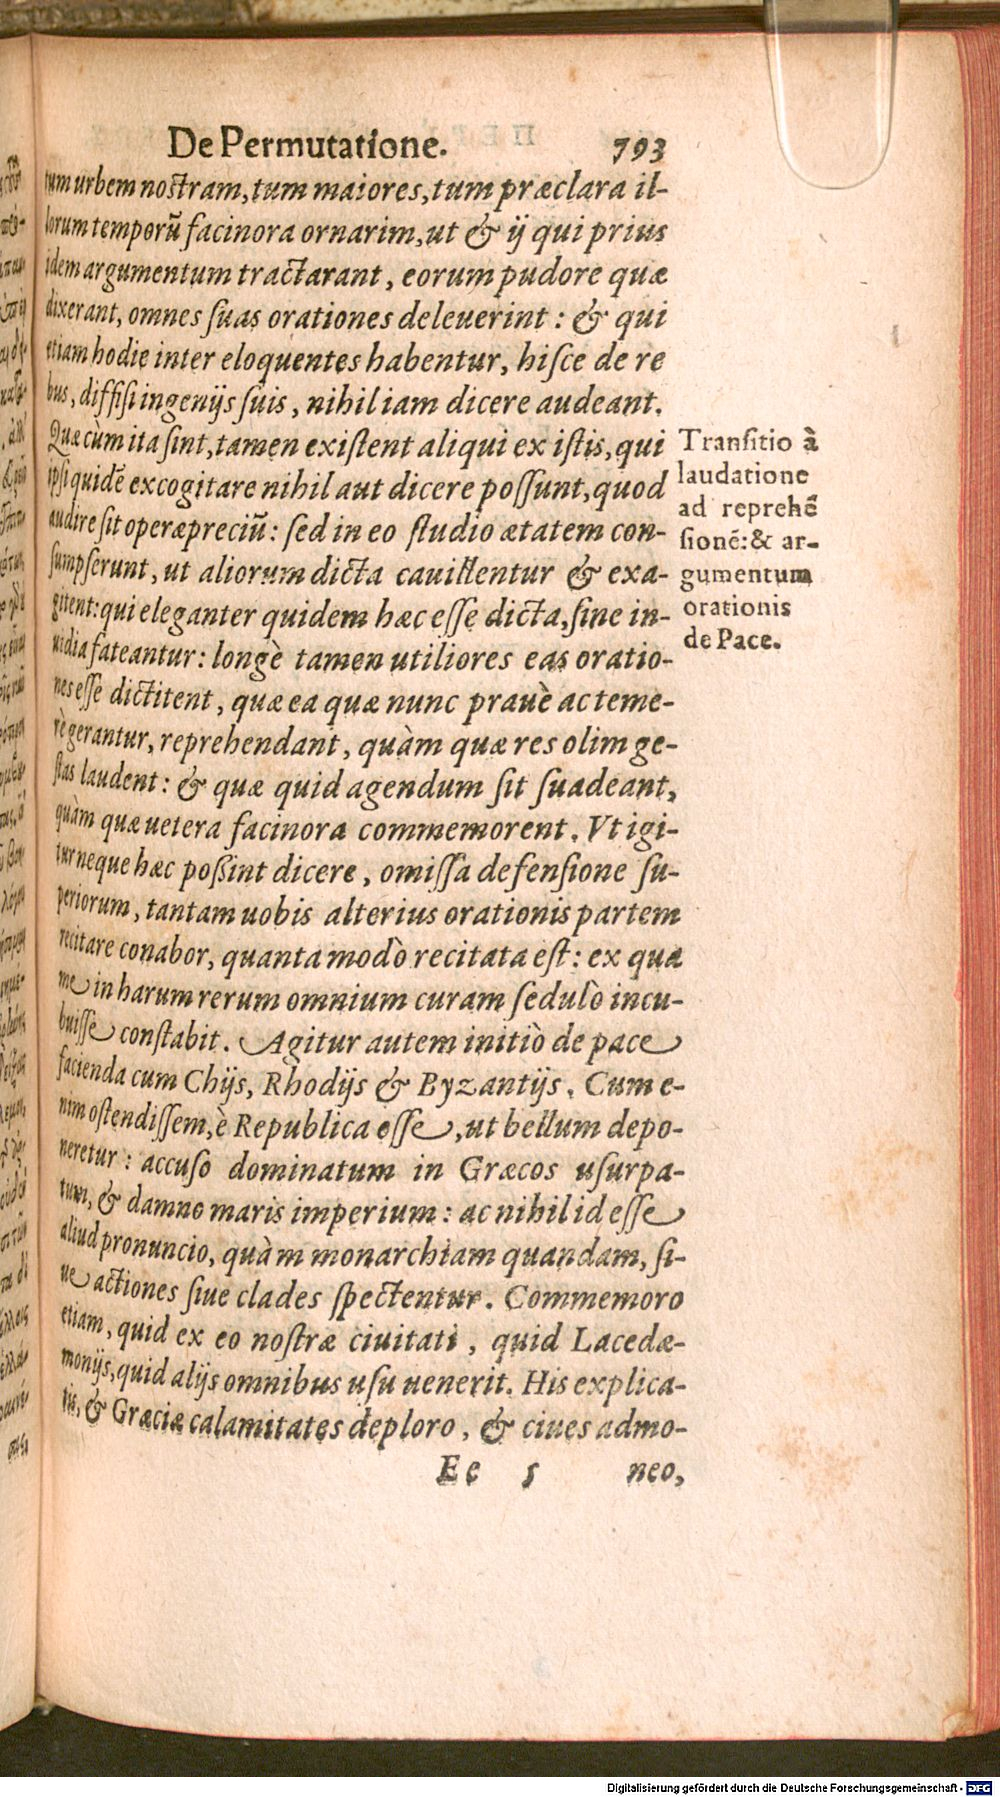 De Permutatione. 793
tum urbem nostram, tum maiores, tum præclara il-
lorum temporũ facinora ornarim, ut & ij qui prius
idem argumentum tractarant, eorum pudore quæ
dixerant, omnes suas orationes deleuerint: & qui
etiam hodie inter eloquentes habentur, hisce de re
bus, diffisi ingenijs suis, nihil iam dicere audeant.
Quæ cùm ita sint, tamen existent aliqui ex istis, qui
ipsi quidẽ excogitare nihil aut dicere possunt, quod
audire sit operæpreciũ: sed in eo studio ætatem con-
sumpserunt, ut aliorum dicta cauillentur & exa-
gitent: qui eleganter quidem hæc esse dicta, sine in-
uidia fateantur: longè tamen utiliores eas oratio-
nes esse dictitent, quæ ea quæ nunc prauè ac teme-
rè gerantur, reprehendant, quàm quæ res olim ge-
stas laudent: & quæ quid agendum sit suadeant,
quàm quæ uetera facinora commemorent. Vt igi-
tur neque hæc possint dicere, omissa defensione su-
periorum, tantam uobis alterius orationis partem
recitare conabor, quanta modò recitata est: ex qua
me in harum rerum omnium curam sedulò incu-
buisse constabit. Agitur autem initiò de pace
facienda cum Chijs, Rhodijs & Byzantijs. Cum e-
nim ostendissem, è Republica esse, ut bellum depo-
neretur: accuso dominatum in Græcos usurpa-
tum, & damno maris imperium: ac nihil id esse
aliud pronuncio, quàm monarchiam quandam, si-
ue actiones siue clades spectentur. Commemoro
etiam, quid ex eo nostræ ciuitati, quid Lacedæ-
monijs, quid alijs omnibus usu uenerit. His explica-
tis, & Græciæ calamitates deploro, & ciues admo-
Ee 5 neo,
Transitio à
laudatione
ad reprehẽ
sionẽ: & ar-
gumentum
orationis
de Pace.
Digitalisierung gefördert durch die Deutsche Forschungsgemeinschaft - DFG